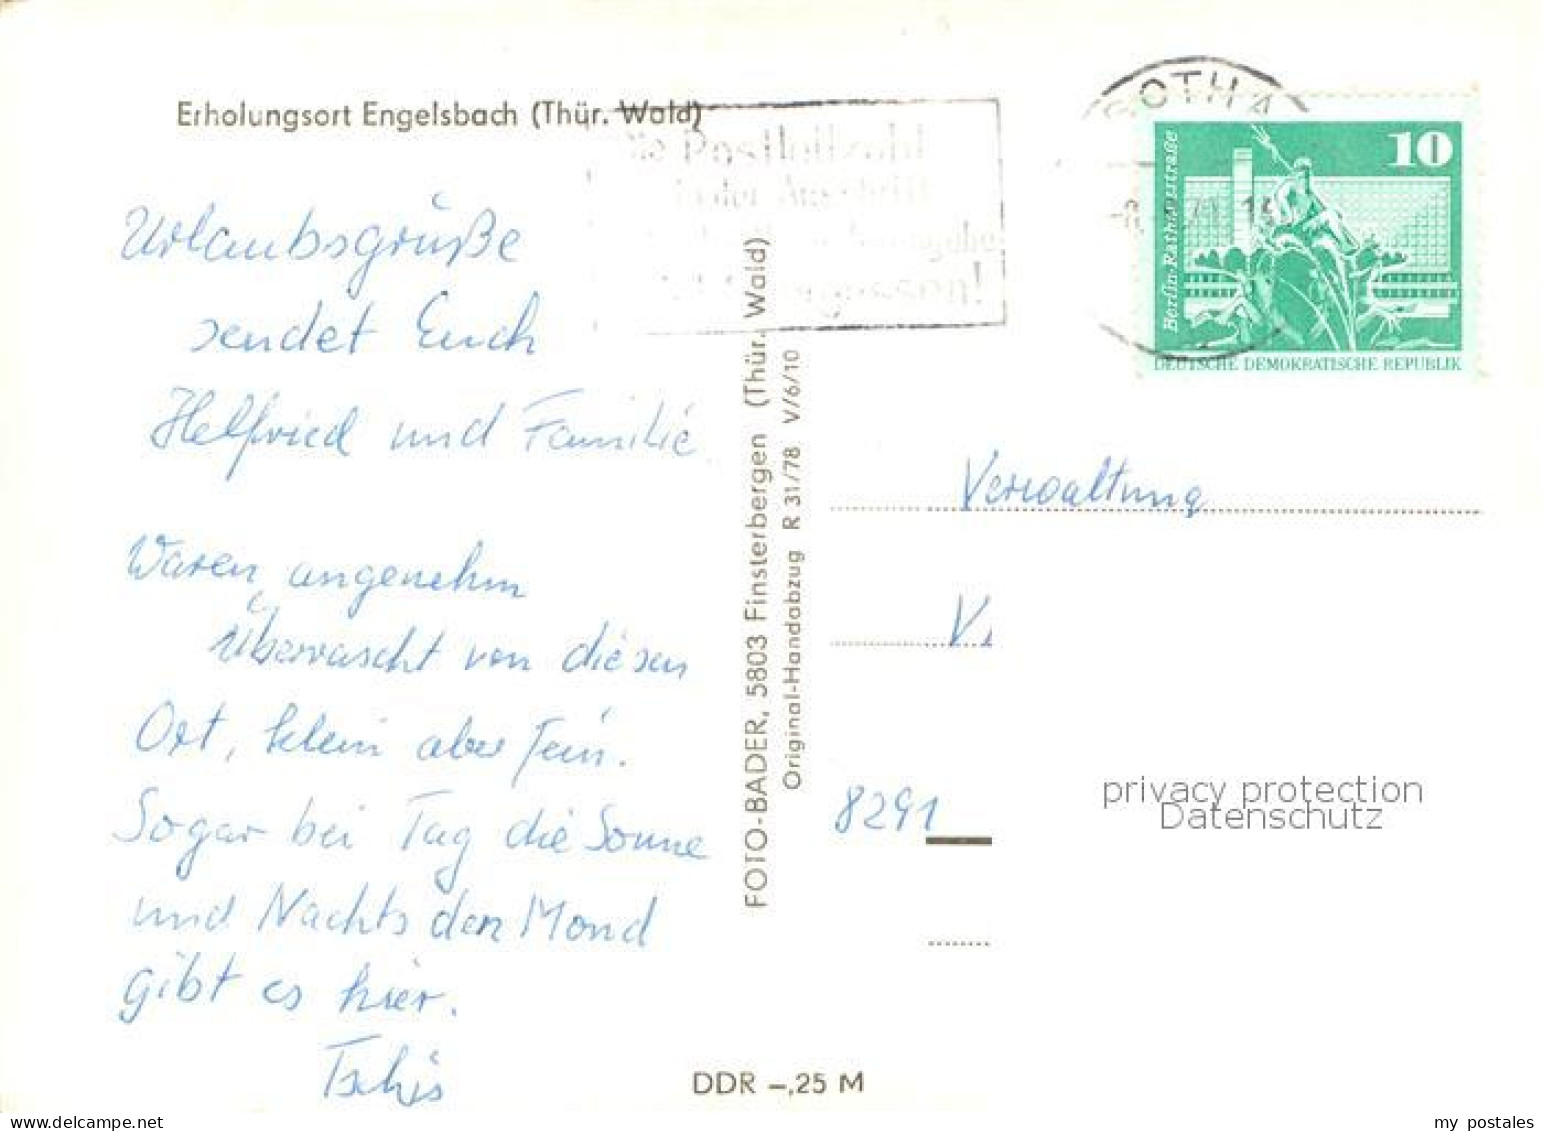 Erholungsort Engelsbach (Thür. Wald)
Urlaubsgrüße
sendet Euch
Helfried und Familie
Waren angenehm
überrascht von diesen
Ort, klein aber fein.
Sogar bei Tag die Sonne
und Nachts den Mond
gibt es hier.
Tschüs
DDR –,25 M
FOTO-BADER, 5803 Finsterbergen (Thür. Wald)
Original-Handabzug R 31/78 V/6/10
Postleitzahl
GOTHA
10
Berlin-Rathausstraße
DEUTSCHE DEMOKRATISCHE REPUBLIK
Verwaltung
8291
privacy protection
Datenschutz
www.delcampe.net
my_postales